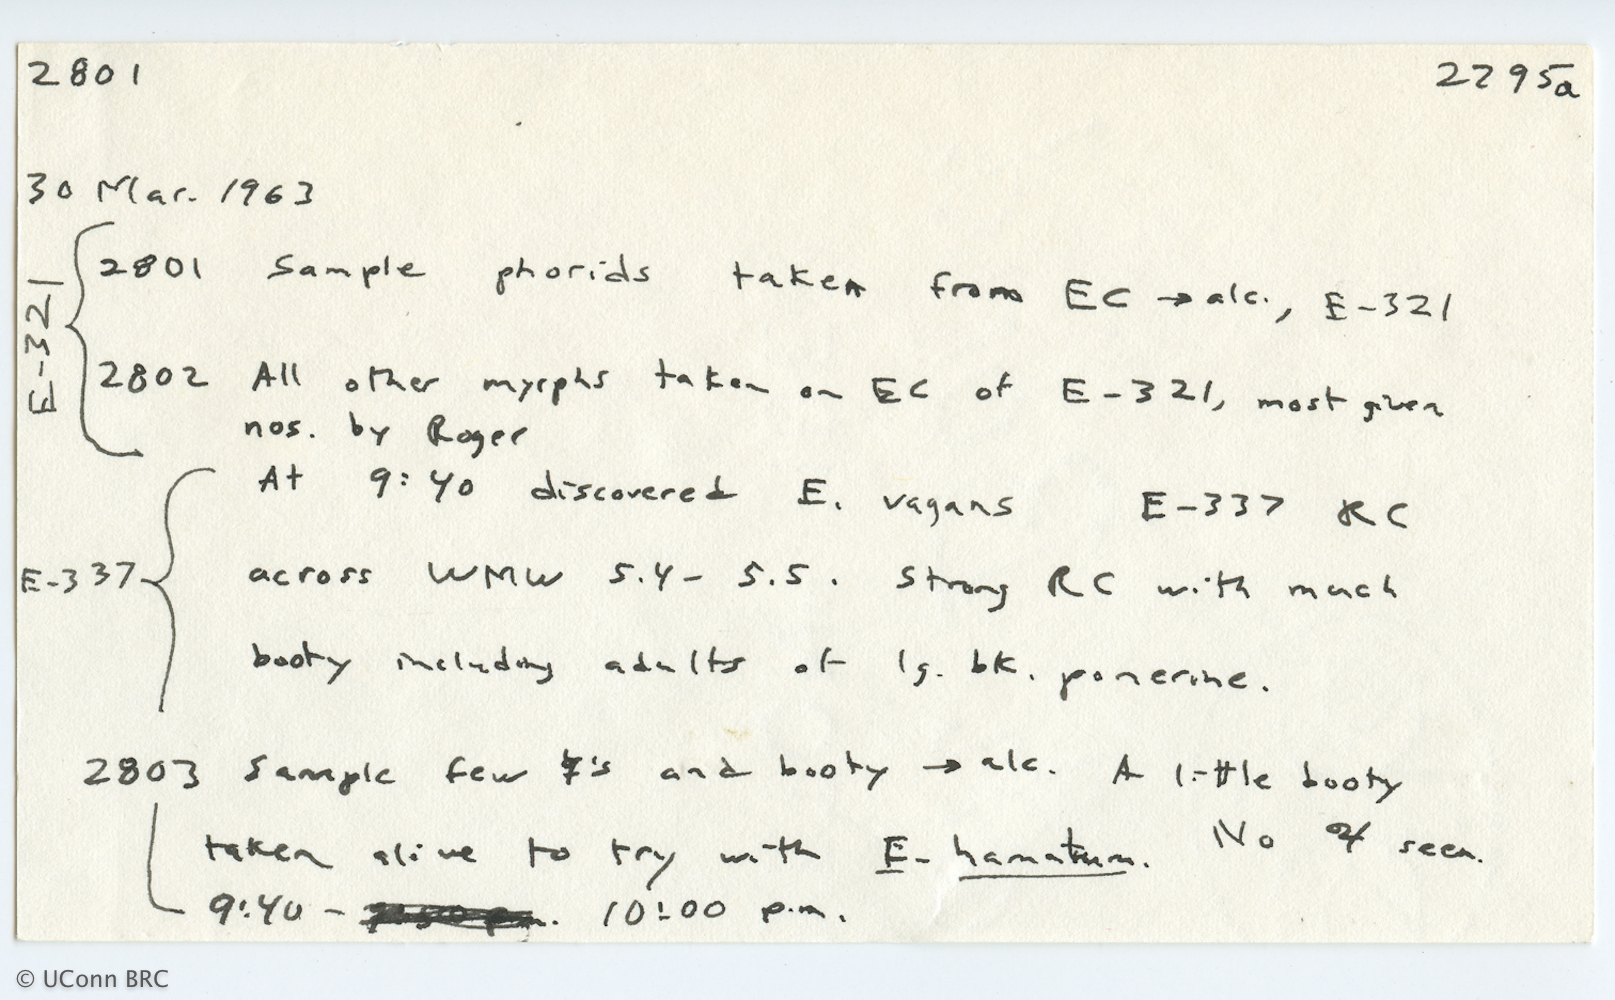 2801 2795a
30 Mar. 1963
E-321
2801 Sample phorids taken from EC → alc., E-321
2802 All other myrphs taken on EC of E-321, most given
nos. by Roger
At 9:40 discovered E. vagans E-337 RC
E-337 across WMW 5.4 - 5.5. Strong RC with much
booty including adults of lg. bk. ponerine.
2803 Sample few ☿'s and booty → alc. A little booty
taken alive to try with E. hamatum. No seen.
9:40 - 10:00 p.m.
© UConn BRC